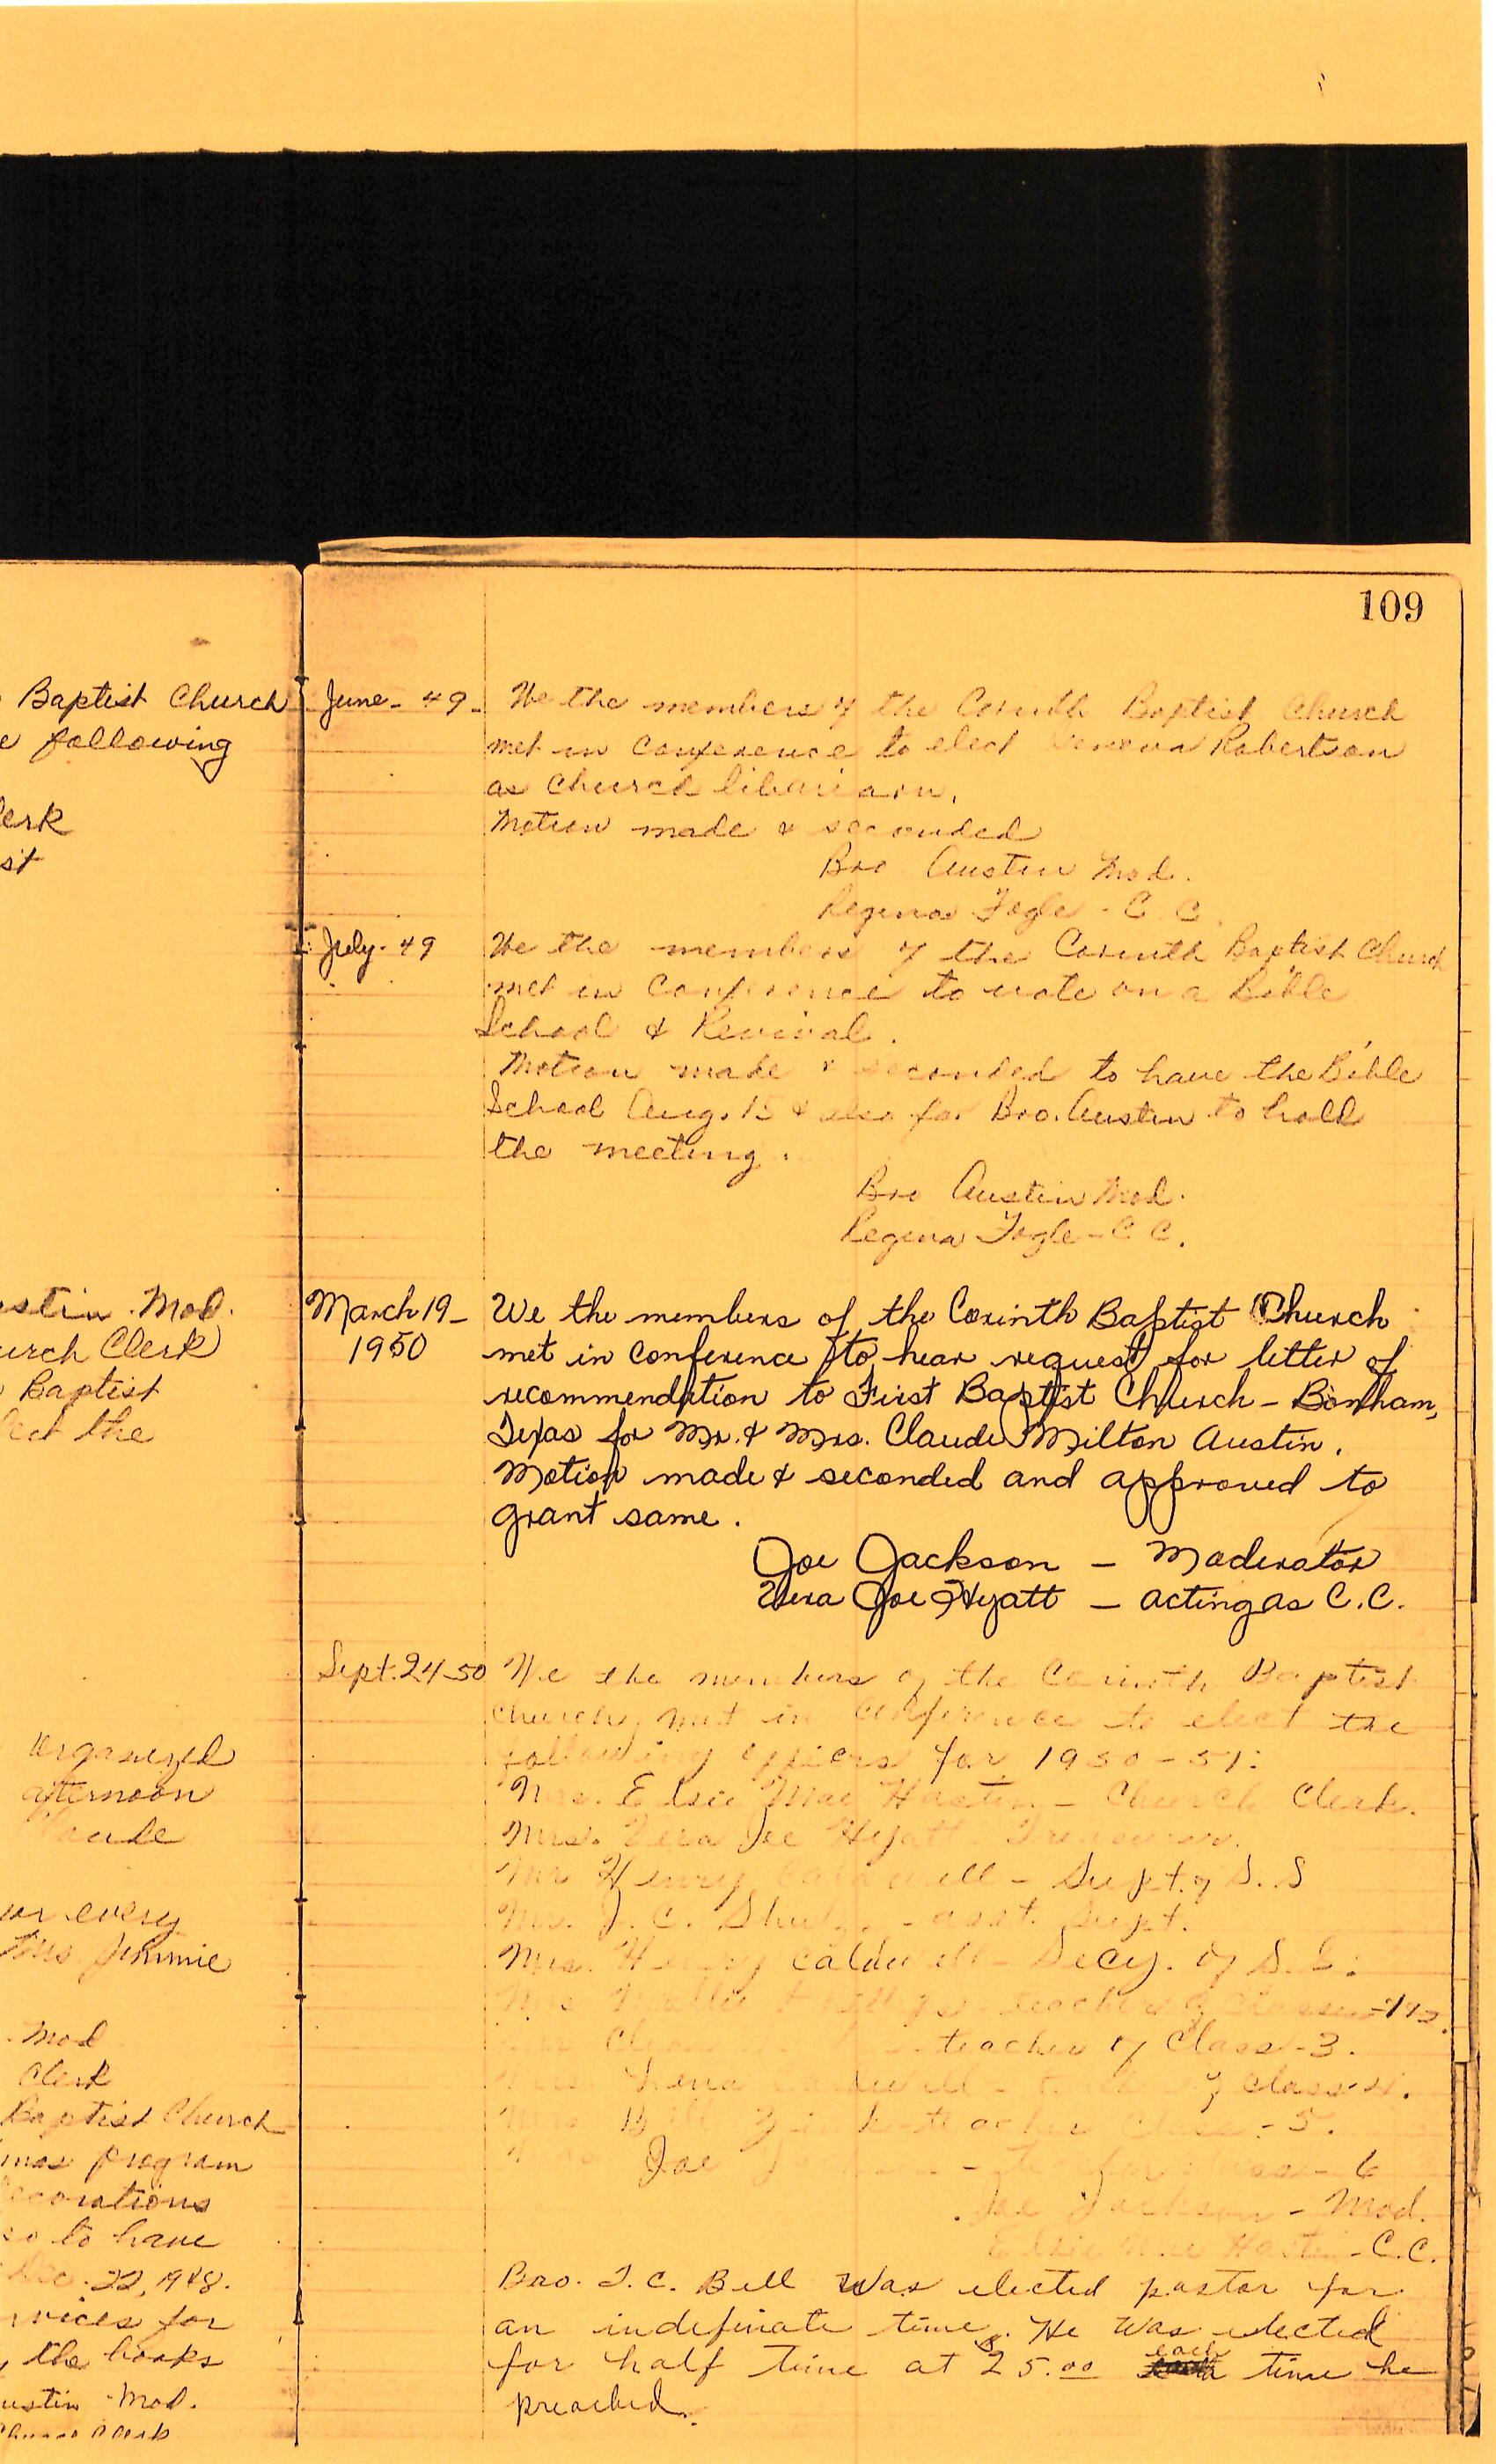 109
Baptist Church
following
lerk
st
stin Mod.
urch Clerk
Baptist
lect the
organized
afternoon
Claude
or every
Mrs Jimmie
Mod
Clerk
Baptist Church
mas program
ecorations
so to have
Dec. 22, 1948.
rvices for
the books
ustin - Mod.
June - 49 - We the members of the Corinth Baptist Church
met in conference to elect Robertson
as Church libariarn.
Motion made & seconded
Bro Austin Mod.
Regina Fogle - C C.
July - 49 We the members of the Corinth Baptist Church
met in Conference to vote on a Bible
School & Revival.
Motion made & seconded to have the Bible
School Aug. 15 & also for Bro. Austin to hold
the meeting.
Bro Austin Mod.
Regina Fogle - C C.
March 19 - We the members of the Corinth Baptist Church
1950 met in conference to hear request for letter of
recommendation to First Baptist Church - Bonham,
Texas for Mr. & Mrs. Claude Milton Austin.
Motion made & seconded and approved to
grant same.
Joe Jackson - Moderator
Vera Joe Hyatt - acting as C.C.
Sept. 24-50 We the members of the Corinth Baptist
Church, met in conference to elect the
following officers for 1950-51:
Mrs. Elsie Mae - Church Clerk.
Mrs. Vera Joe Hyatt Treasurer.
Mr Henry Caldwell - Supt. of S. S
Mr. J. C. - asst. Supt.
Mrs. Henry Caldwell - Secy. of S. S.
Mrs teacher of Classes - 1 & 2.
teacher of Class - 3.
Mrs Lena of Class 4.
Mrs Bill teacher Class - 5.
Joe - 6
Joe Jackson - Mod.
Elsie Mae - C.C.
Bro. T. C. Bell was elected pastor for
an indefinate time. He was elected
for half time at $25.00 each time he
preached.